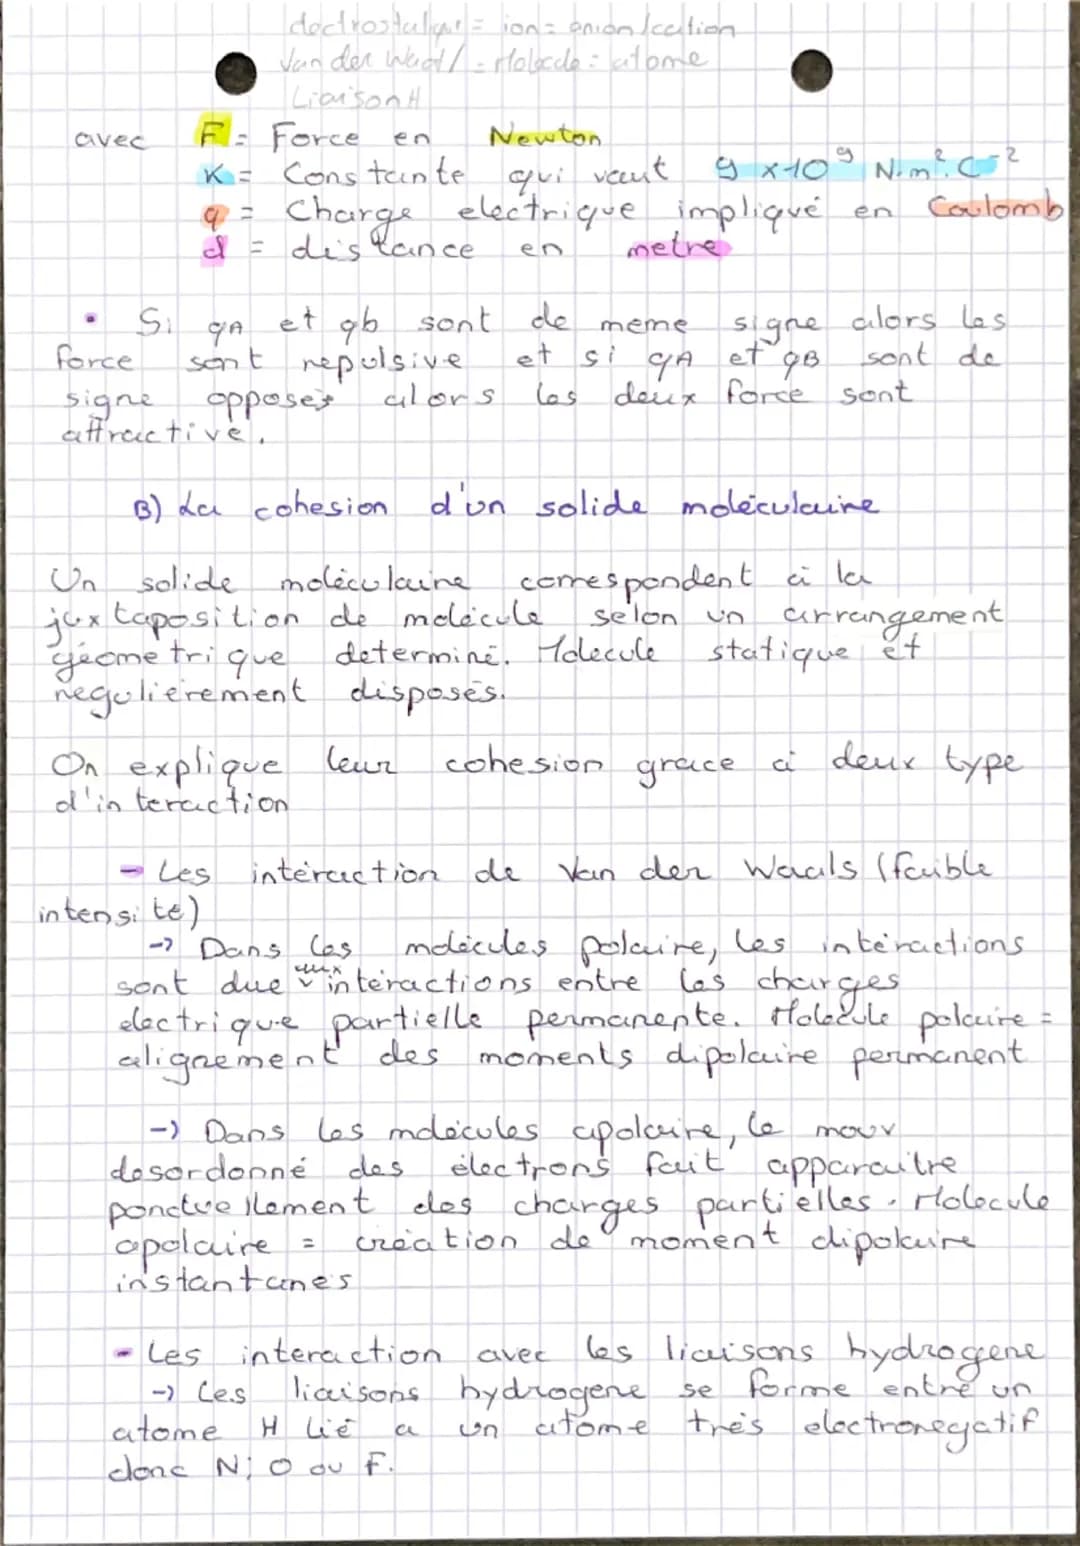 électrostatique = ion = anion/cation
Van der Waal / = Molecule = atome
Liaison H
avec F = Force en Newton
K = Constante qui vaut 9 x 10⁹ N.m².C⁻²
q = Charge electrique impliqué en Coulomb
d = distance en metre
• Si qA et qb sont de meme signe alors les
force sont repulsive et si qA et qB sont de
signe opposés alors les deux force sont
attractive.
B) La cohesion d'un solide moléculaire
Un solide moléculaire correspondent à la
juxtaposition de molécule selon un arrangement
géometrique determiné. Molecule statique et
regulierement disposés.
On explique leur cohesion grace à deux type
d'interaction
- Les intéraction de Van der Waals (faible
intensité)
-> Dans les molécules polaire, les intéractions
sont due aux intéractions entre les charges
electrique partielle permanente. Molécule polaire =
alignement des moments dipolaire permanent
-> Dans les molécules apolaire, le mouv
desordonné des électrons fait apparaitre
ponctuellement des charges partielles. Molecule
apolaire = création de moment dipolaire
instantanés
- Les interaction avec les liaisons hydrogene
-> Les liaisons hydrogene se forme entre un
atome H lié a un atome très electronegatif
donc N; O ou F.